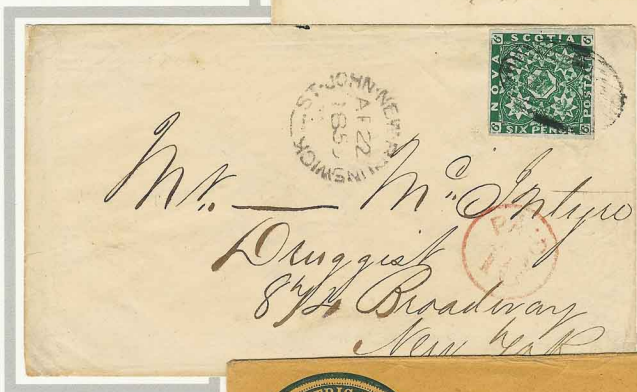 NOVA SCOTIA POSTAGE
SIX PEN
ST. JOHN. NEW. BRUNSWICK
AP 22
185
PAID
Mr. — McIntyre
Druggist
874 Broadway
New York